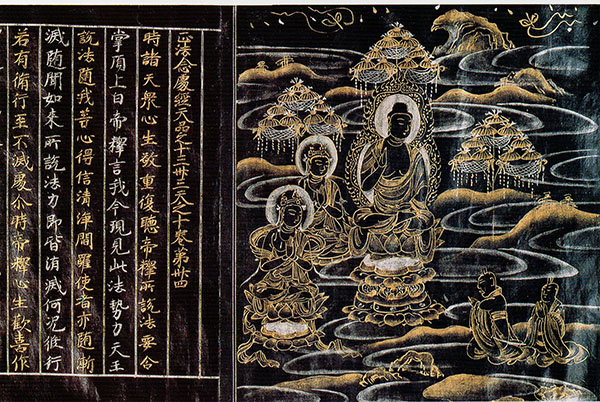 正法念處經天品之十三卅三天之十卷第卅四
時諸天衆心生敬重復聽帝釋所說法要合
掌頂上白帝釋言我今現見此法勢力天王
說法随我等心得信清淨閻羅使者亦随漸
滅随聞如来所說法力即皆消滅何況修行
若有脩行至不滅處尒時帝釋心生歡喜作